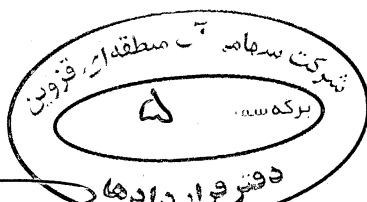 شرکت سهامی آب منطقه‌ای قزوین
برگه سه
۵
دفتر قراردادها